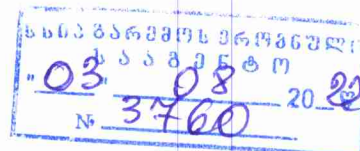 სსიპ გარემოს ეროვნული
სააგენტო
"03" 08 2022
№ 3760